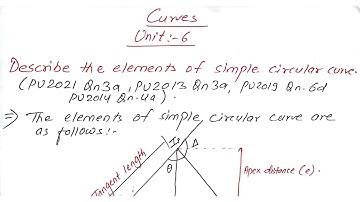 Curves
Unit:-6
Describe the elements of simple circular curve.
(PU2021 Qn3a, PU2013 Qn3a, PU2019 Qn.6d
PU2014 Qn.4a).
⇒ The elements of simple circular curve are
as follows:-
Δ
θ
Tangent length
Apex distance (e).